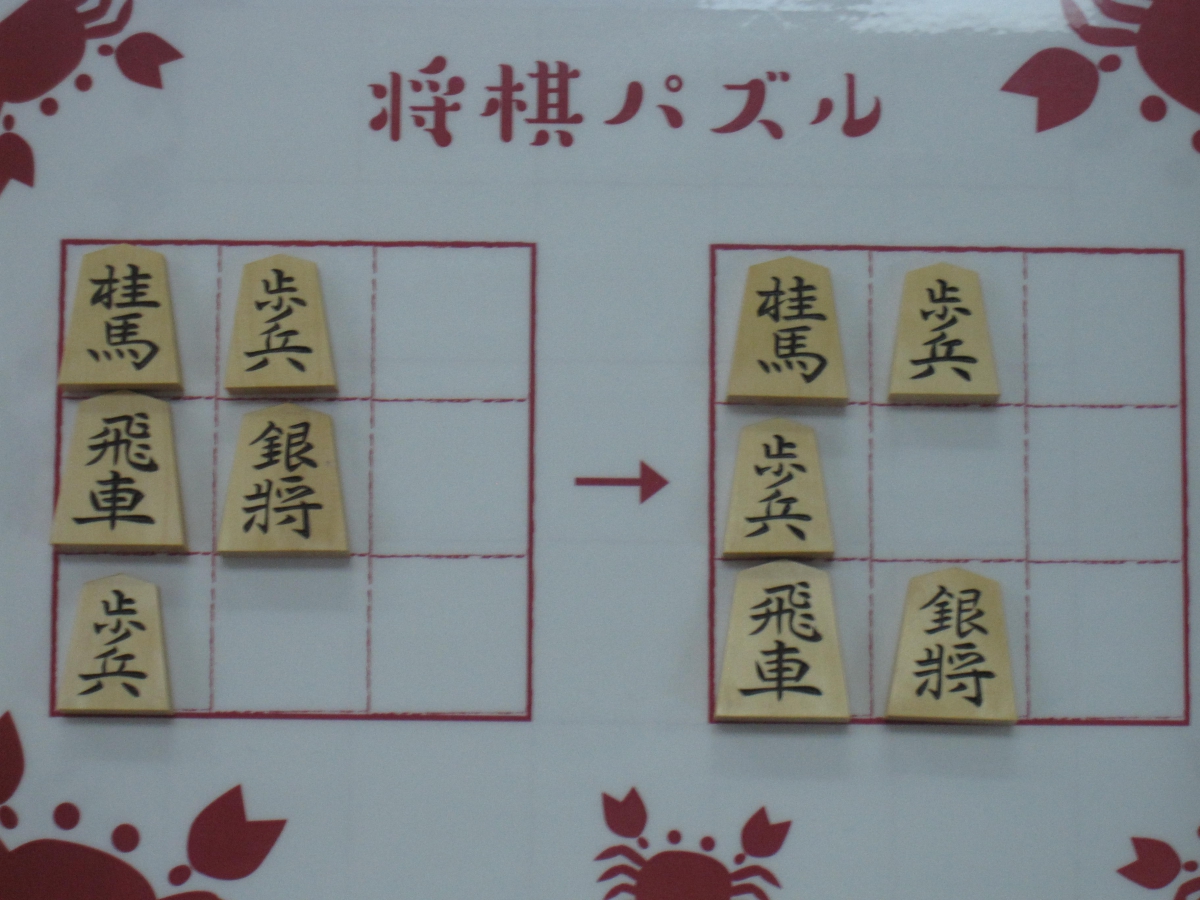 将棋パズル
桂馬
歩兵
飛車
銀将
歩兵
桂馬
歩兵
歩兵
飛車
銀将